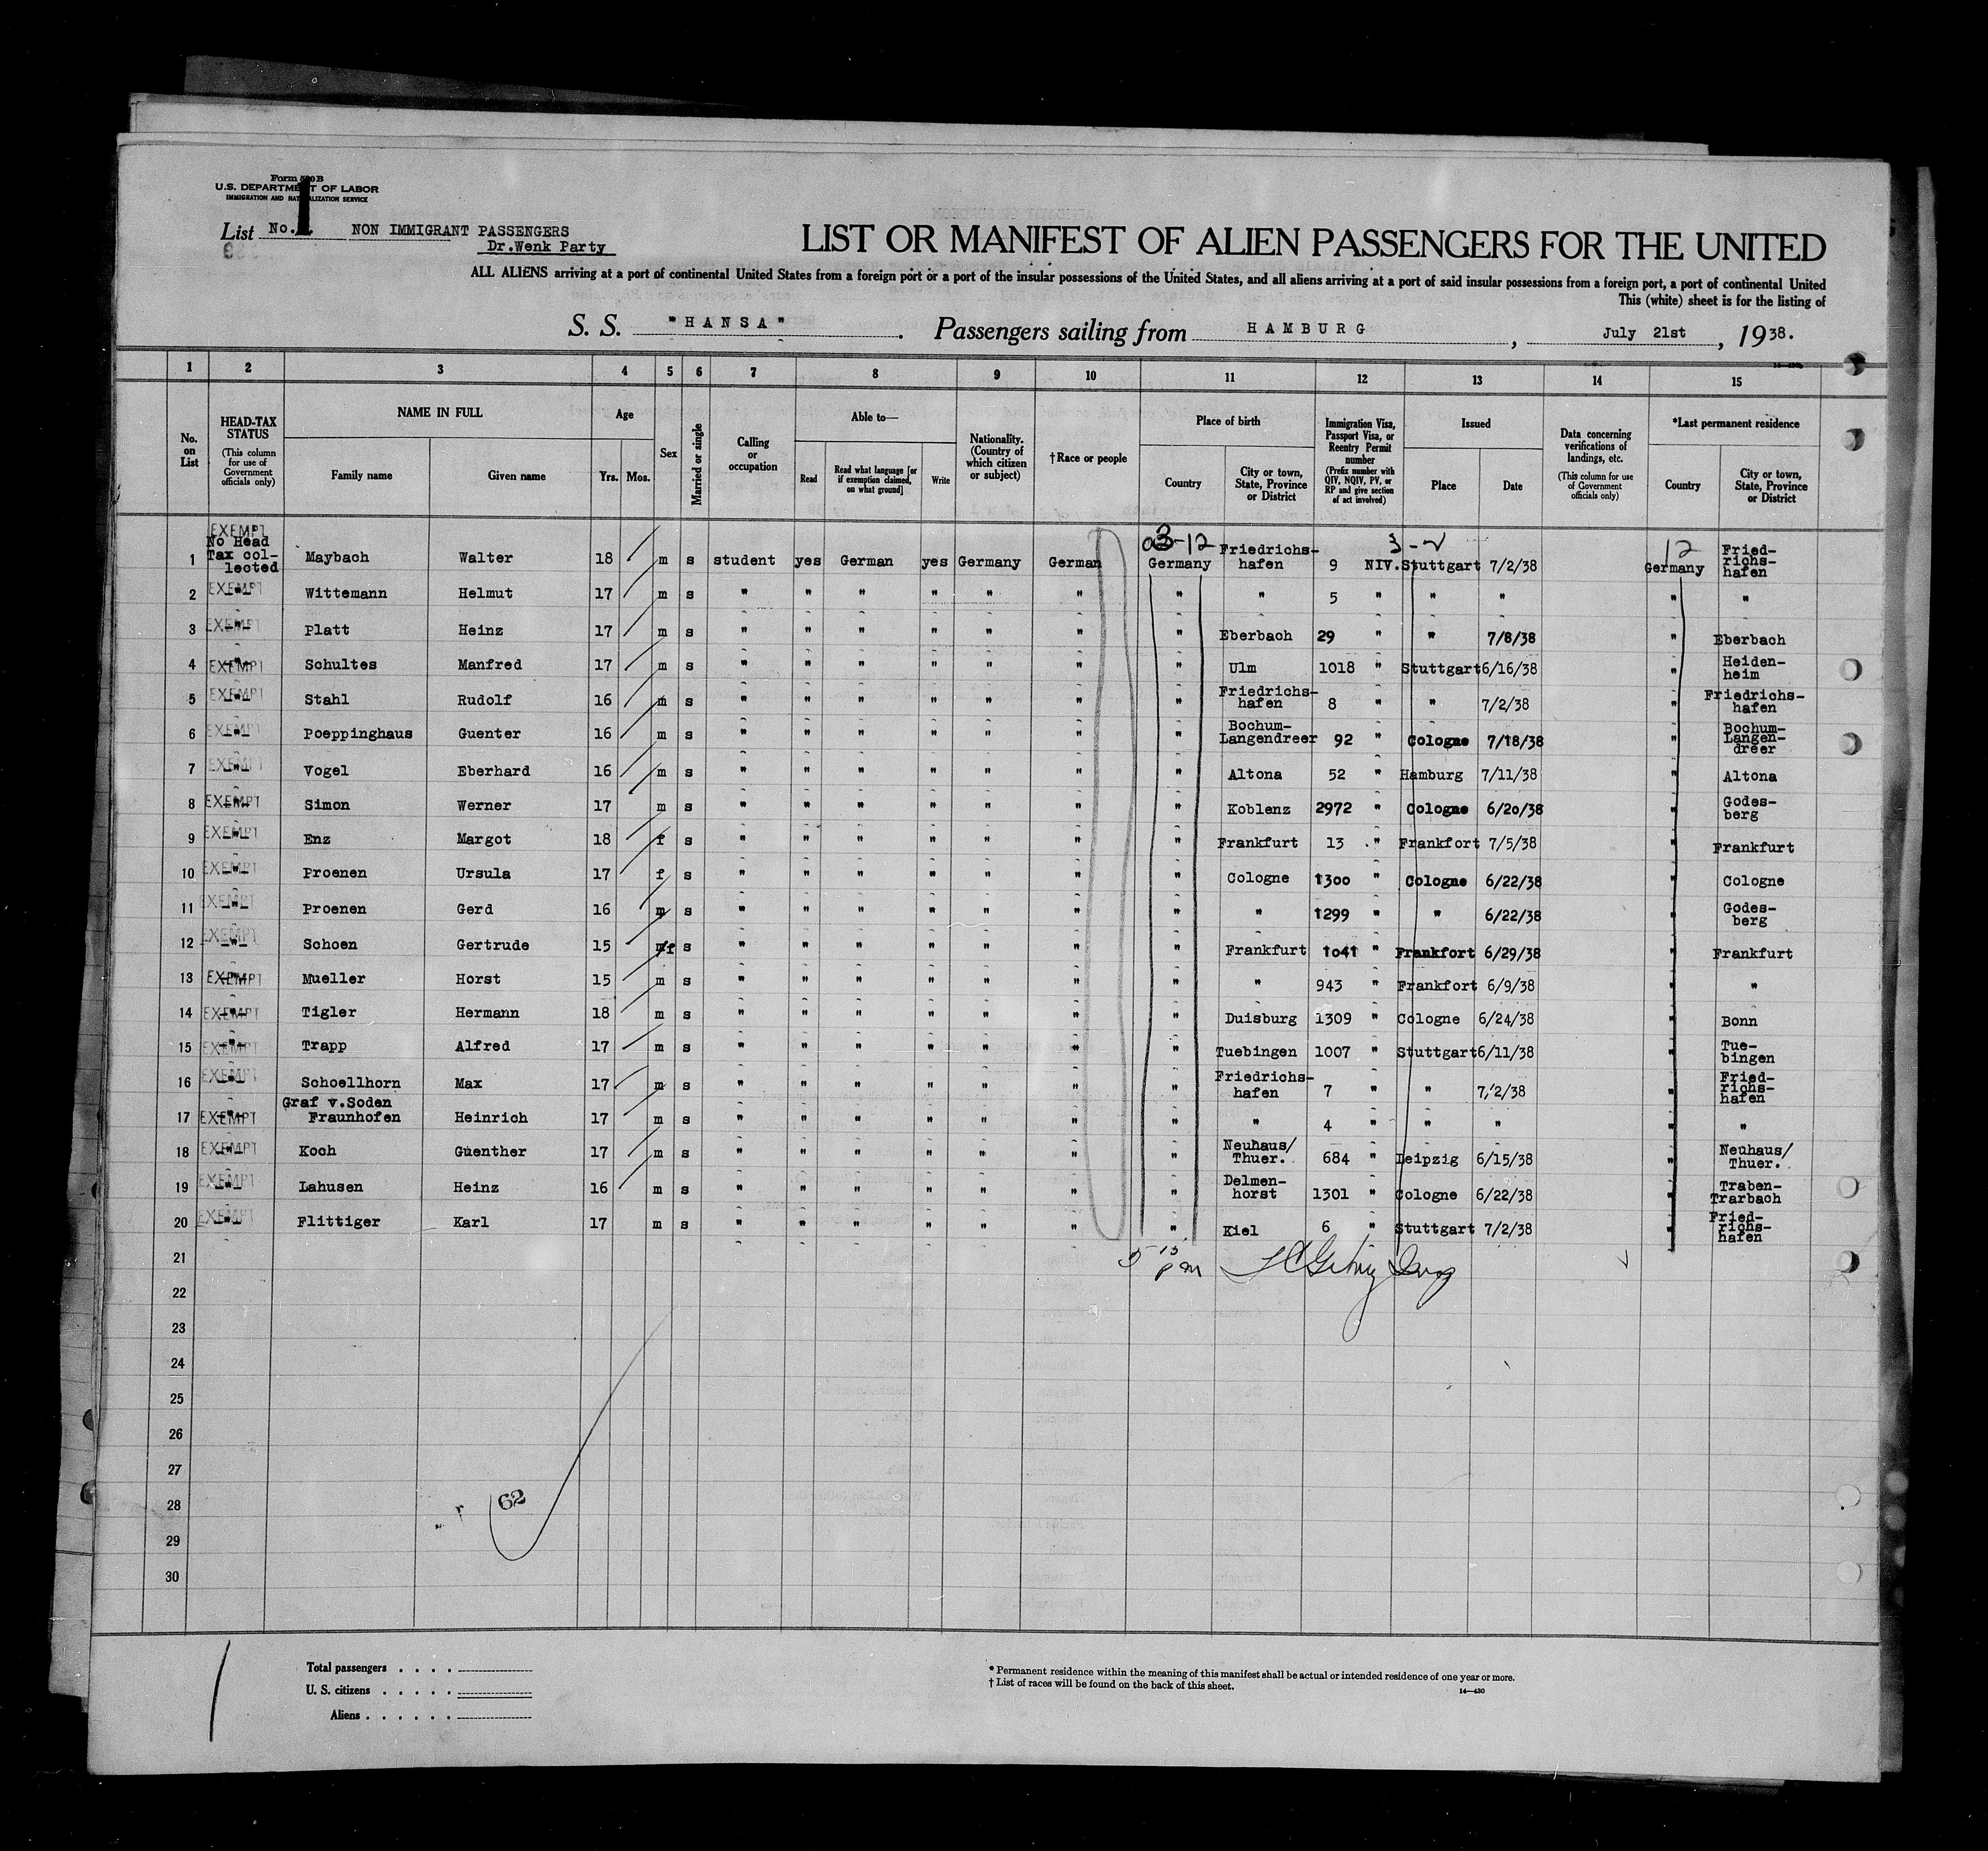 Form 500 B
U.S. DEPARTMENT OF LABOR
IMMIGRATION AND NATURALIZATION SERVICE
List No. 1 NON IMMIGRANT PASSENGERS
Dr.Wenk Party
LIST OR MANIFEST OF ALIEN PASSENGERS FOR THE UNITED
ALL ALIENS arriving at a port of continental United States from a foreign port or a port of the insular possessions of the United States, and all aliens arriving at a port of said insular possessions from a foreign port, a port of continental United
This (white) sheet is for the listing of
S. S. "HANSA". Passengers sailing from HAMBURG, July 21st, 1938.
1 2 3 4 5 6 7 8 9 10 11 12 13 14 15
No. on List
HEAD-TAX STATUS (This column for use of Government officials only)
NAME IN FULL Family name Given name
Age Yrs. Mos.
Sex
Married or single
Calling or occupation
Able to— Read Read what language [or if exemption claimed, on what ground] Write
Nationality. (Country of which citizen or subject)
†Race or people
Place of birth Country City or town, State, Province or District
Immigration Visa, Passport Visa, or Reentry Permit number (Prefix number with QIV, NQIV, PV, or RP and give section of act involved)
Issued Place Date
Data concerning verifications of landings, etc. (This column for use of Government officials only)
*Last permanent residence Country City or town, State, Province or District
3-12 12
1 EXEMPT No Head Tax collected Maybach Walter 18 m s student yes German yes Germany German Germany Friedrichs-hafen 9 NIV. Stuttgart 7/2/38 Germany Fried-richs-hafen
2 EXEMPT -"- Wittemann Helmut 17 m s " " " " " " " " 5 " " " " "
3 EXEMPT -"- Platt Heinz 17 m s " " " " " " " Eberbach 29 " " 7/8/38 " Eberbach
4 EXEMPT -"- Schultes Manfred 17 m s " " " " " " " Ulm 1018 " Stuttgart 6/16/38 " Heiden-heim
5 EXEMPT -"- Stahl Rudolf 16 m s " " " " " " " Friedrichs-hafen 8 " " 7/2/38 " Friedrichs-hafen
6 EXEMPT -"- Poeppinghaus Guenter 16 m s " " " " " " " Bochum-Langendreer 92 " Cologne 7/18/38 " Bochum-Langen-dreer
7 EXEMPT -"- Vogel Eberhard 16 m s " " " " " " " Altona 52 " Hamburg 7/11/38 " Altona
8 EXEMPT -"- Simon Werner 17 m s " " " " " " " Koblenz 2972 " Cologne 6/20/38 " Godes-berg
9 EXEMPT -"- Enz Margot 18 f s " " " " " " " Frankfurt 13 " Frankfort 7/5/38 " Frankfurt
10 EXEMPT -"- Proenen Ursula 17 f s " " " " " " " Cologne 1300 " Cologne 6/22/38 " Cologne
11 EXEMPT -"- Proenen Gerd 16 m s " " " " " " " " 1299 " " 6/22/38 " Godes-berg
12 EXEMPT -"- Schoen Gertrude 15 m/f s " " " " " " " Frankfurt 1041 " Frankfort 6/29/38 " Frankfurt
13 EXEMPT -"- Mueller Horst 15 m s " " " " " " " " 943 " Frankfort 6/9/38 " "
14 EXEMPT -"- Tigler Hermann 18 m s " " " " " " " Duisburg 1309 " Cologne 6/24/38 " Bonn
15 EXEMPT -"- Trapp Alfred 17 m s " " " " " " " Tuebingen 1007 " Stuttgart 6/11/38 " Tue-bingen
16 EXEMPT -"- Schoellhorn Max 17 m s " " " " " " " Friedrichs-hafen 7 " " 7/2/38 " Fried-richs-hafen
17 EXEMPT -"- Graf v.Soden Fraunhofen Heinrich 17 m s " " " " " " " " 4 " " " " "
18 EXEMPT -"- Koch Guenther 17 m s " " " " " " " Neuhaus/Thuer. 684 " Leipzig 6/15/38 " Neuhaus/Thuer.
19 EXEMPT -"- Lahusen Heinz 16 m s " " " " " " " Delmen-horst 1301 " Cologne 6/22/38 " Traben-Trarbach
20 EXEMPT -"- Flittiger Karl 17 m s " " " " " " " Kiel 6 " Stuttgart 7/2/38 " Fried-richs-hafen
21
22
23
24
25
26
27
28
29
30
62
Total passengers . . . .
U. S. citizens . . . . .
Aliens . . . . . .
* Permanent residence within the meaning of this manifest shall be actual or intended residence of one year or more.
† List of races will be found on the back of this sheet.
14—430